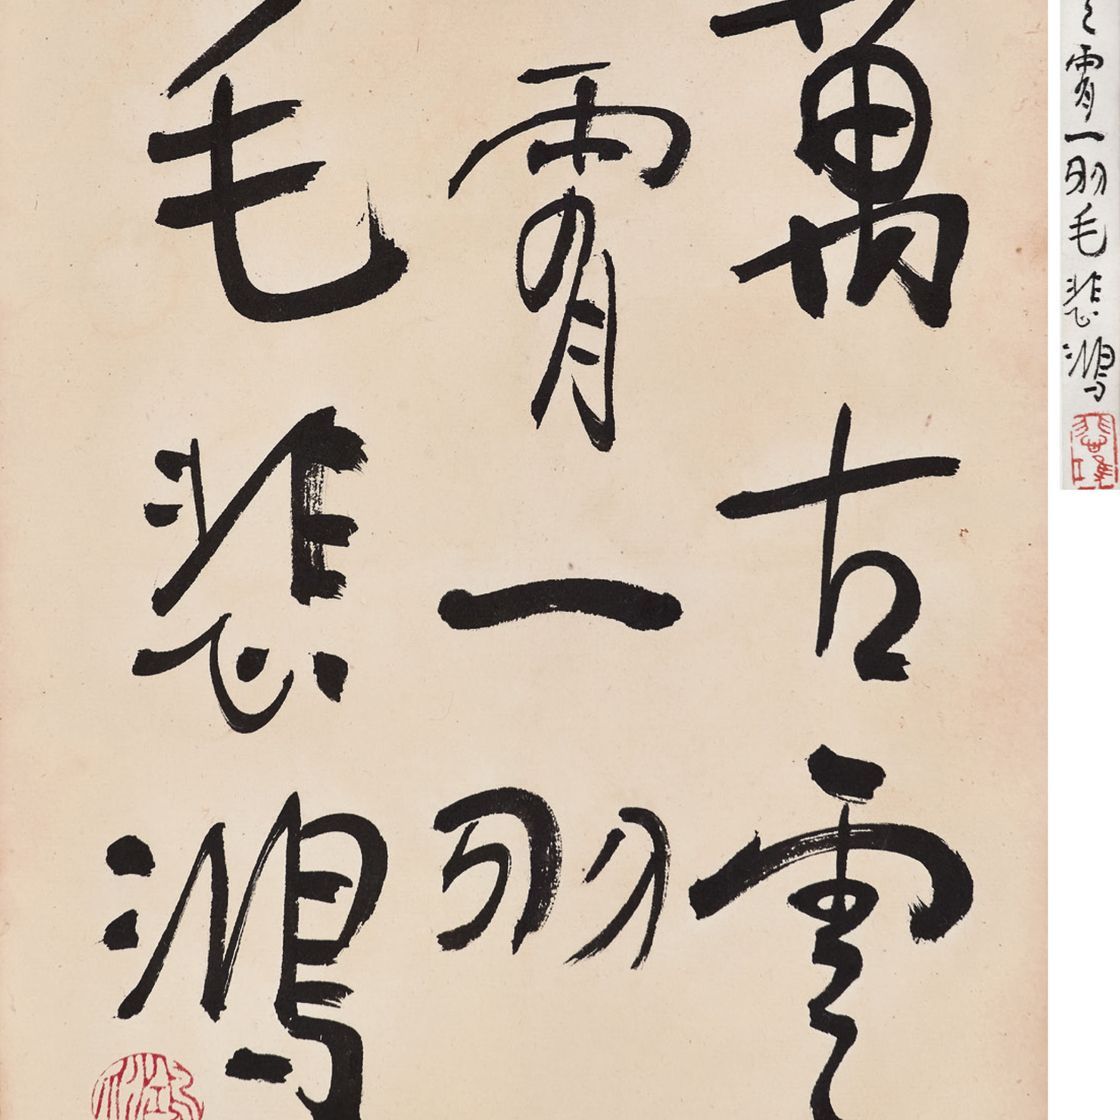 萬古雲
霄一羽
毛悲鴻
霄一羽毛悲鴻